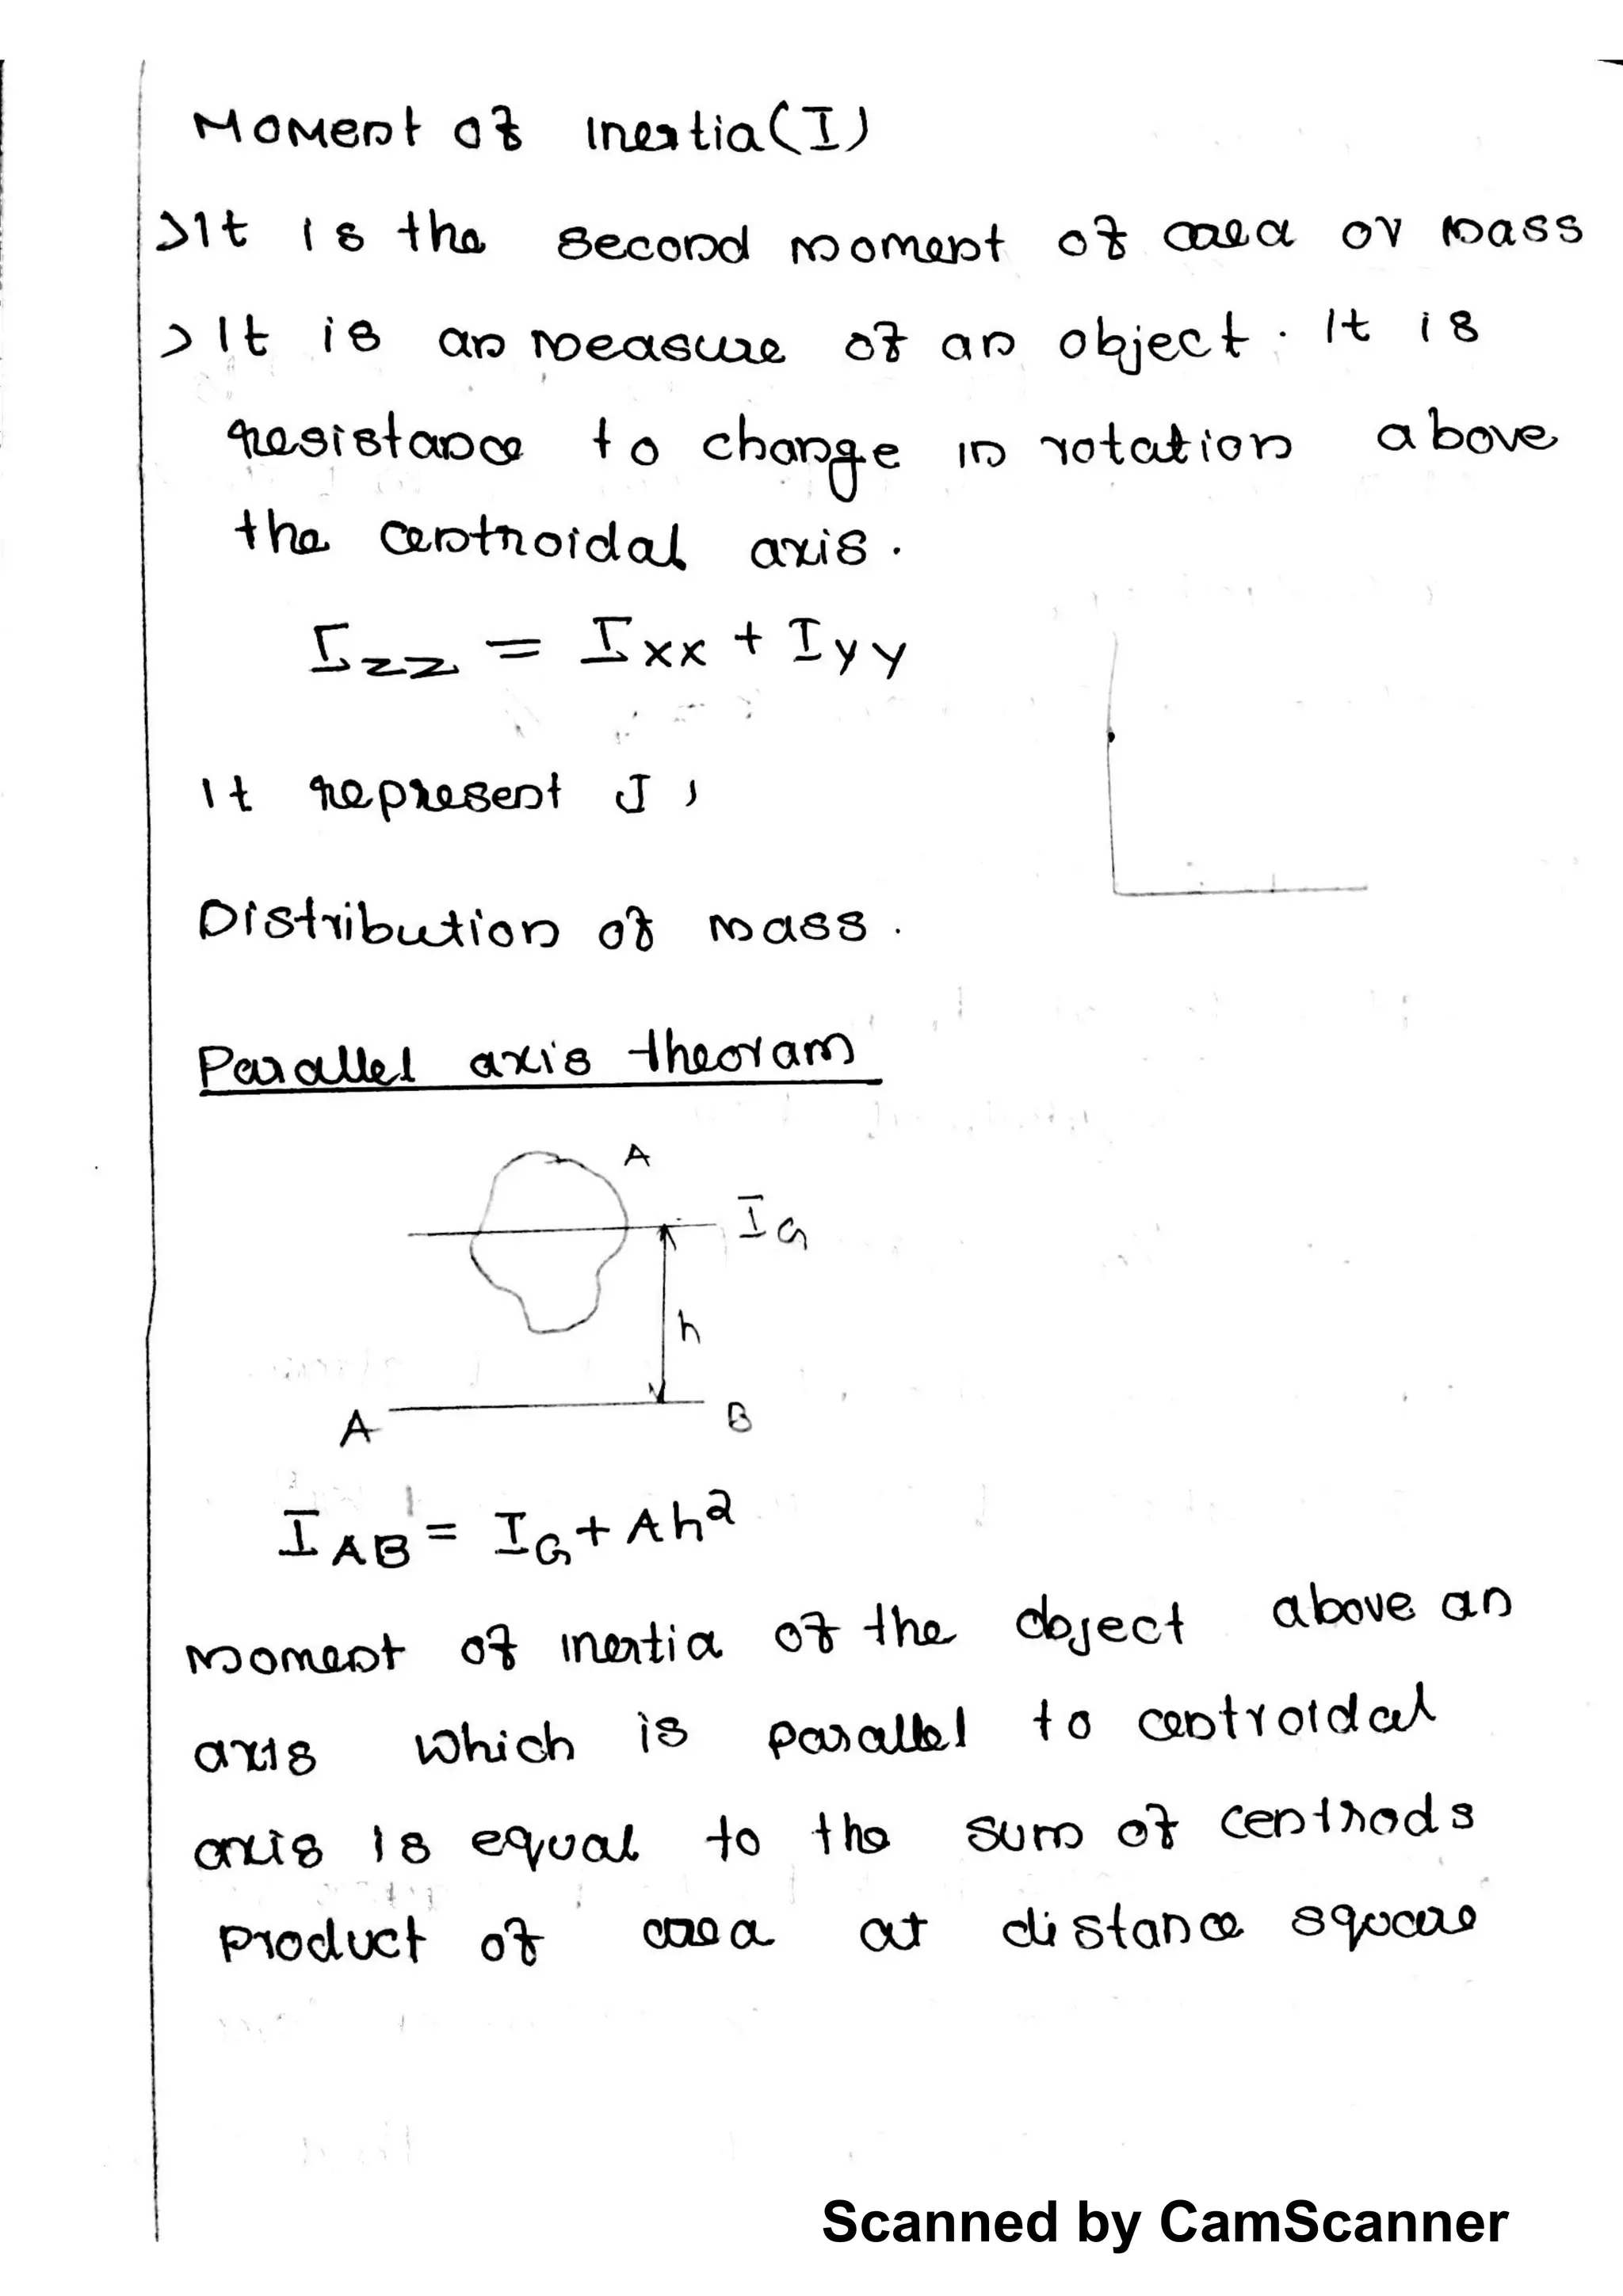 Moment of Inertia (I)
>It is the second moment of area or mass
> It is an measure of an object. It is
resistance to change in rotation above
the centroidal axis.
Izz = Ixx + Iyy
It represent J,
Distribution of mass.
Parallel axis theoram
A
IG
h
A B
IAB = IG + Ah²
Moment of inertia of the object above an
axis which is parallel to centroidal
axis is equal to the sum of centrods
product of area at distance square
Scanned by CamScanner